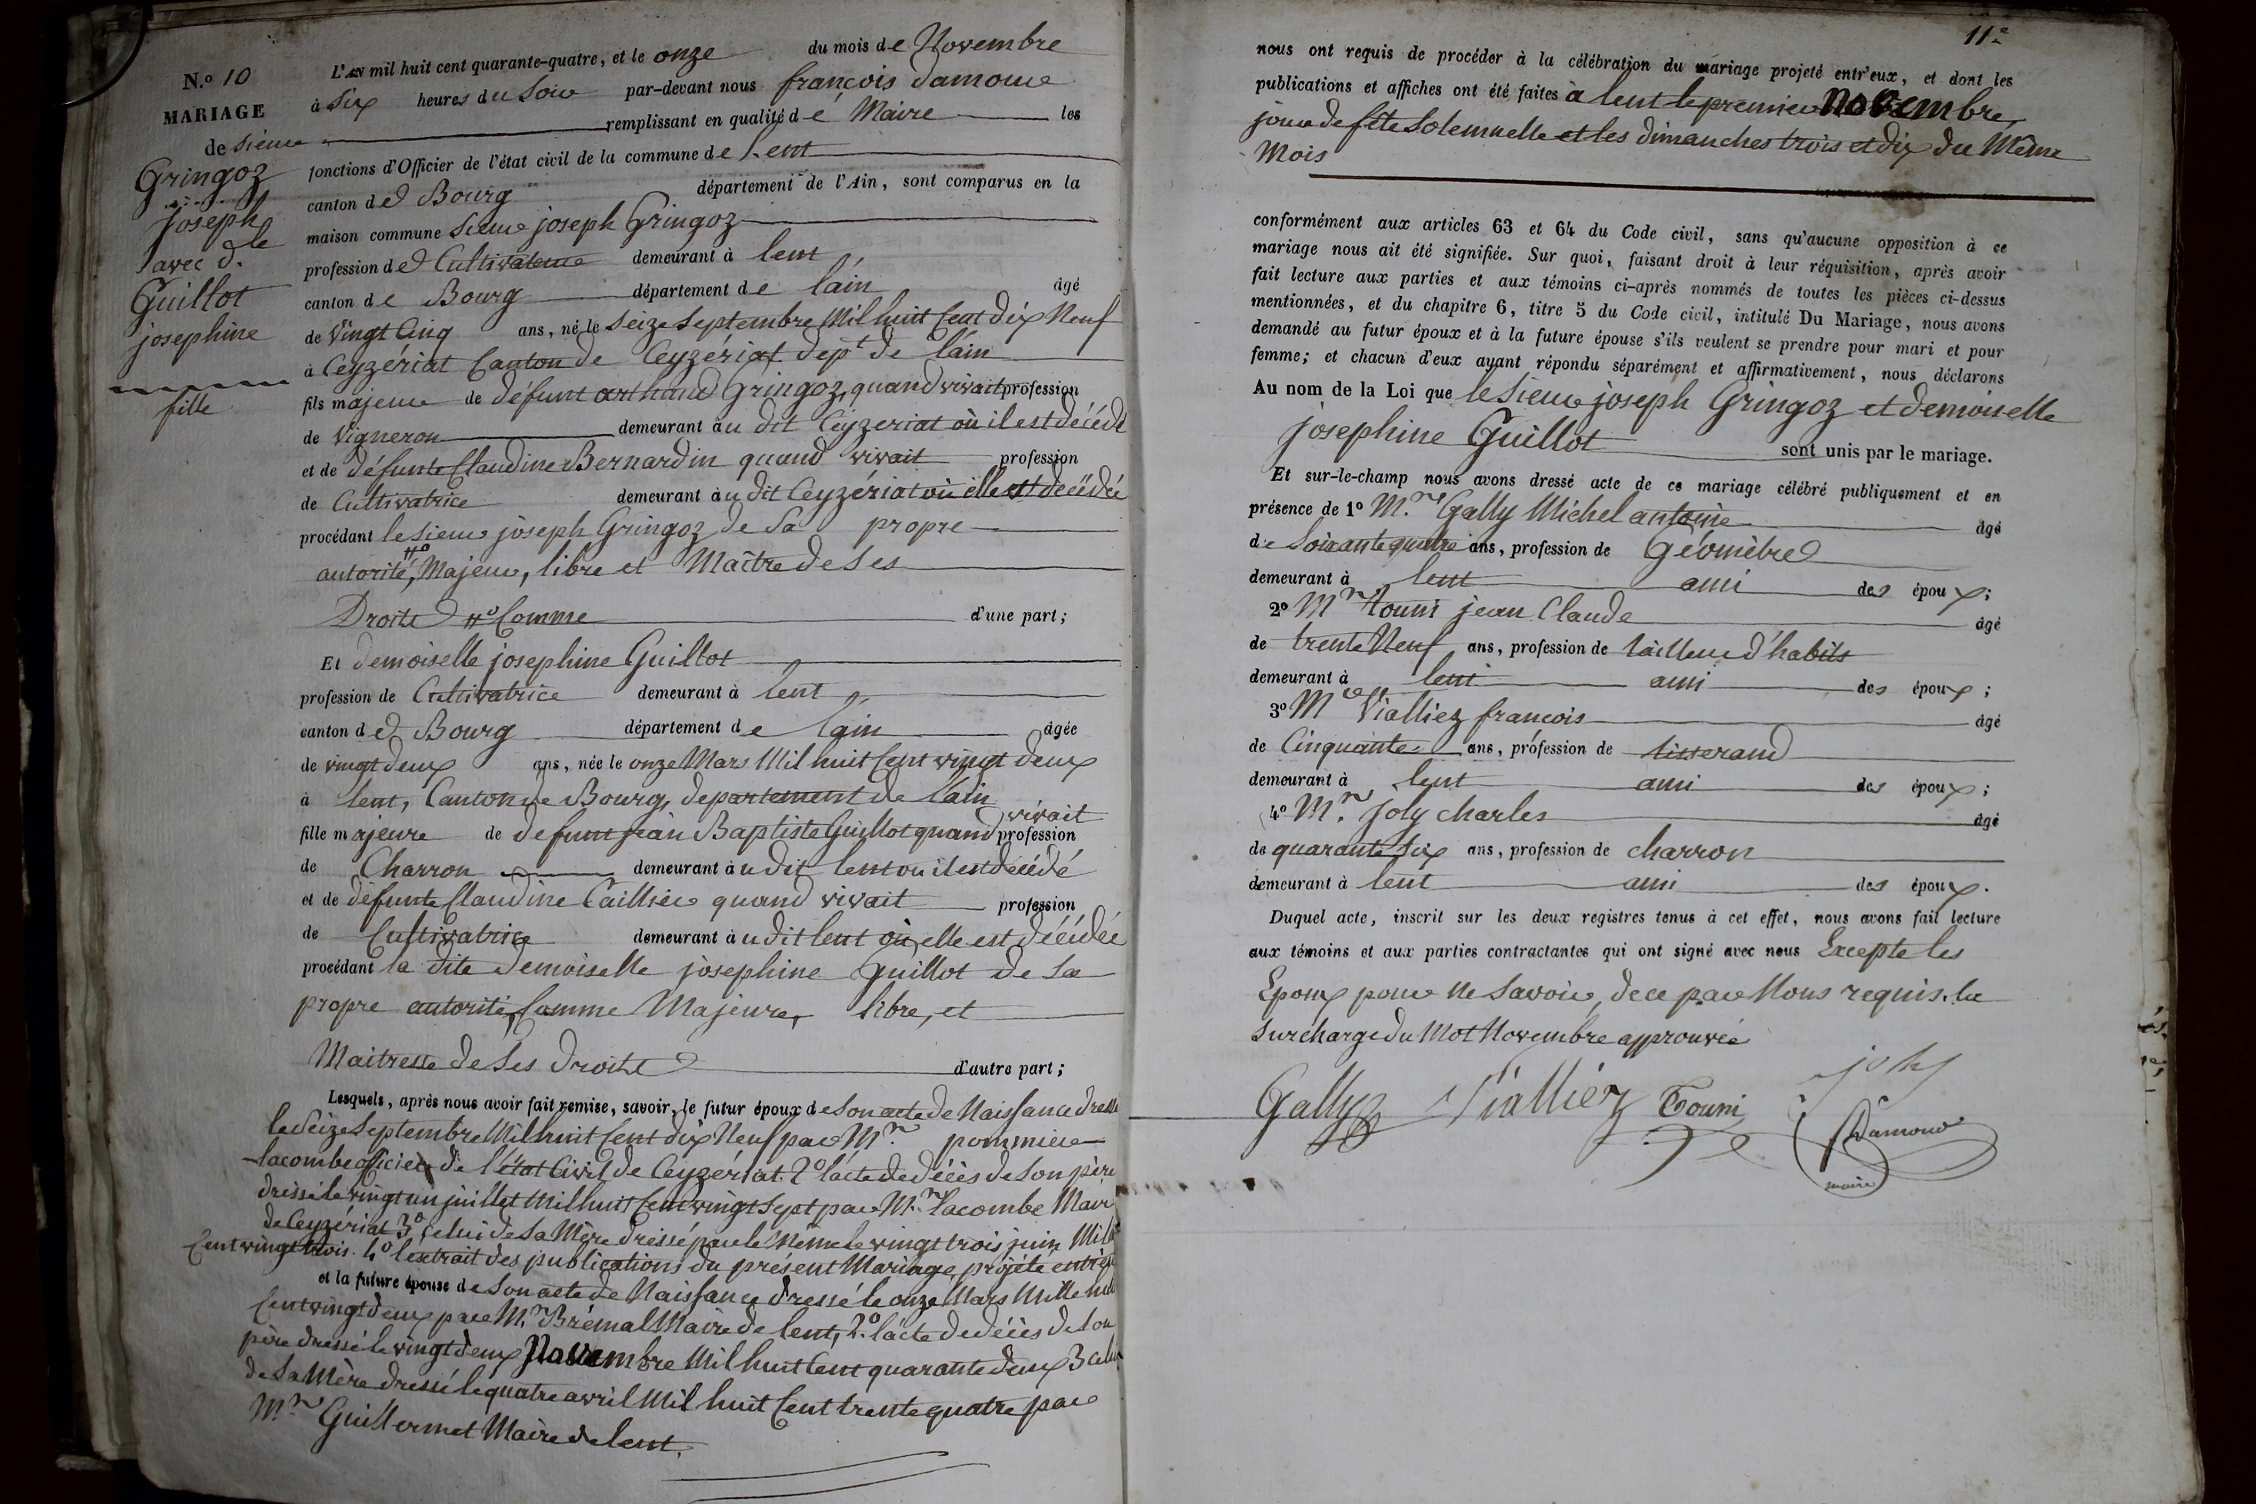 N.º 10
MARIAGE
de sieur
Gringoz
joseph
avec d.lle
Guillot
josephine
fille
L'AN mil huit cent quarante-quatre, et le onze du mois de Novembre
à six heures du soir par-devant nous françois Damour
remplissant en qualité de Maire les
fonctions d'Officier de l'état civil de la commune de lent
canton de Bourg département de l'Ain, sont comparus en la
maison commune sieur joseph Gringoz
profession de Cultivateur demeurant à lent
canton de Bourg département de l'ain âgé
de vingt cinq ans, né le seize septembre Mil huit Cent dix Neuf
à Ceyzériat Canton de Ceyzériat dept de l'ain
fils majeur de défunt arthaud Gringoz, quand vivait profession
de Vigneron demeurant au dit Ceyzeriat où il est décédé
et de défunte Claudine Bernardin quand vivait profession
de Cultivatrice demeurant au dit Ceyzériat où elle est décédée
procédant le sieur joseph Gringoz de sa propre
autorité, #º Majeur, libre et Maître de ses
Droits #º Comme d'une part;
Et demoiselle josephine Guillot
profession de Cultivatrice demeurant à lent
canton de Bourg département de l'ain âgée
de vingt deux ans, née le onze Mars Mil huit Cent vingt deux
à lent, Canton de Bourg, departement de l'ain
fille majeure de defunt jean Baptiste Guillot quand vivait profession
de Charron demeurant au dit lent ou il est décédé
et de défunte Claudine Caillier quand vivait profession
de Cultivatrice demeurant au dit lent où elle est décédée
procédant la dite demoiselle josephine Guillot de sa
propre autorité, Comme Majeure, libre, et
Maitresse de ses droits d'autre part;
Lesquels, après nous avoir fait remise, savoir, le futur époux de son acte de Naissance dressé
le seize septembre Mil huit Cent dix Neuf par Mr. pommier
lacombe officier de l'état Civil de Ceyzériat. 2º l'acte de décès de son père
dressé le vingt un juillet Mil huit Cent vingt sept par Mr. lacombe Maire
de Ceyzériat 3º Celui de sa Mère dressé par le même le vingt trois juin Mil
Cent vingt trois. 4º l'extrait des publications du présent Mariage projeté
et la future épouse de son acte de Naissance dressé le onze Mars Mille huit
Cent vingt deux par Mr. Brémal Maire de lent, 2º l'acte de décès de son
père dressé le vingt deux Novembre Mil huit Cent quarante deux 3 celui
de sa Mère dressé le quatre avril Mil huit Cent trente quatre par
Mr Guillermet Maire de lent.
11e
nous ont requis de procéder à la célébration du mariage projeté entr'eux, et dont les
publications et affiches ont été faites à lent le premier Novembre,
jour de fête solemnelle et les dimanches trois et dix du Même
Mois
conformément aux articles 63 et 64 du Code civil, sans qu'aucune opposition à ce
mariage nous ait été signifiée. Sur quoi, faisant droit à leur réquisition, après avoir
fait lecture aux parties et aux témoins ci-après nommés de toutes les pièces ci-dessus
mentionnées, et du chapitre 6, titre 5 du Code civil, intitulé Du Mariage, nous avons
demandé au futur époux et à la future épouse s'ils veulent se prendre pour mari et pour
femme; et chacun d'eux ayant répondu séparément et affirmativement, nous déclarons
Au nom de la Loi que le sieur joseph Gringoz et demoiselle
josephine Guillot sont unis par le mariage.
Et sur-le-champ nous avons dressé acte de ce mariage célébré publiquement et en
présence de 1º M.r Gally Michel antoine âgé
de soixante quatre ans, profession de Géomètre
demeurant à lent ami des époux;
2º Mr Touni jean Claude âgé
de trente Neuf ans, profession de tailleur d'habits
demeurant à lent ami des époux;
3º Mr Vialliez françois âgé
de Cinquante ans, profession de tisserand
demeurant à lent ami des époux;
4º M.r Joly charles âgé
de quarante six ans, profession de charron
demeurant à lent ami des époux.
Duquel acte, inscrit sur les deux registres tenus à cet effet, nous avons fait lecture
aux témoins et aux parties contractantes qui ont signé avec nous Excepté les
Epoux pour Ne savoir, de ce par Nous requis. la
surcharge du Mot Novembre approuvée
Gally Vialliez Touni joly
Damour
maire